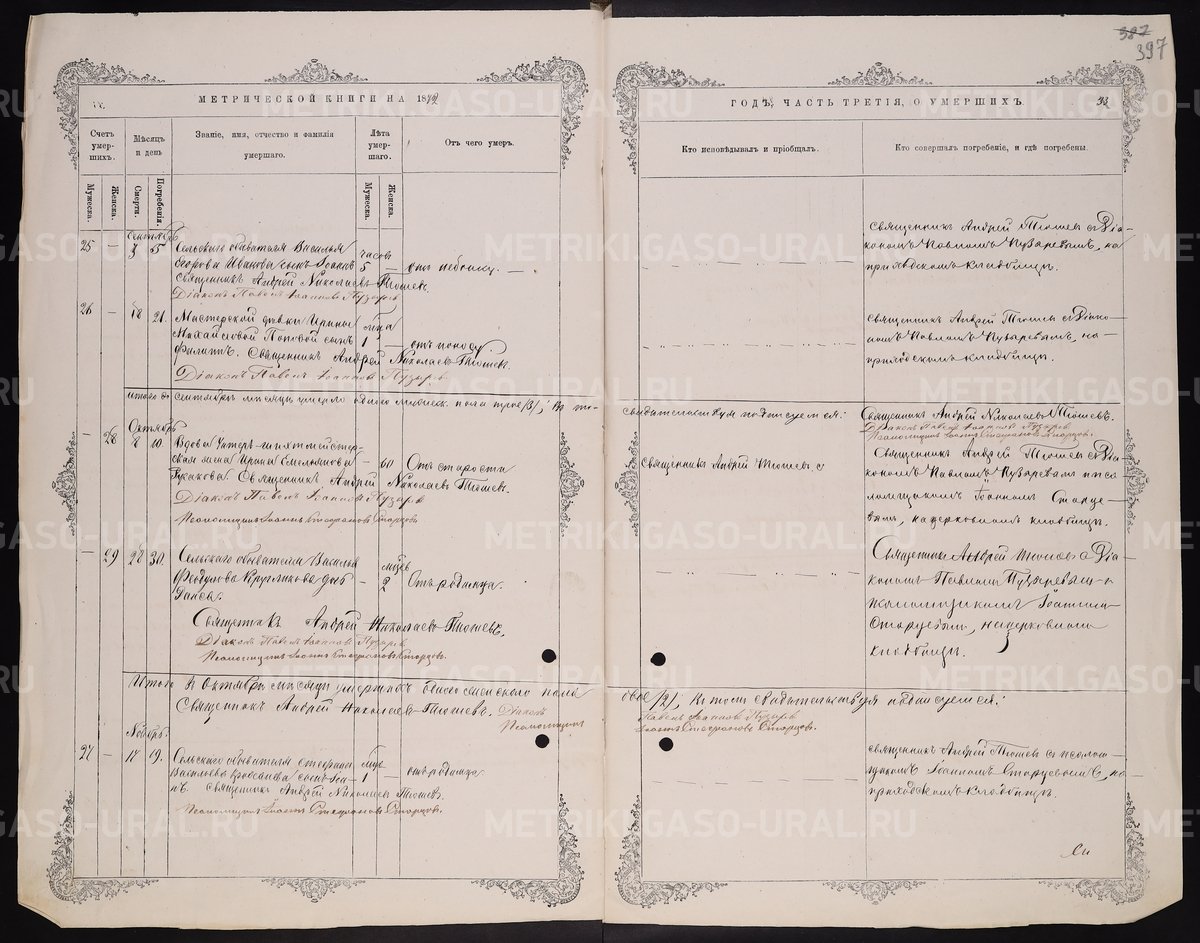 387
397
МЕТРИЧЕСКОЙ КНИГИ НА 1872
ГОДЪ, ЧАСТЬ ТРЕТІЯ, О УМЕРШИХЪ.
93
Счетъ умер-шихъ.
Мѣсяцъ и день
Званіе, имя, отчество и фамилія умершаго.
Лѣта умер-шаго.
Отъ чего умеръ.
Кто исповѣдывалъ и пріобщалъ.
Кто совершалъ погребеніе, и гдѣ погребены.
Мужеска.
Женска.
Смерти.
Погребенія.
Мужеска.
Женска.
Сентябрь
25 — 3 5 Сельскаго обывателя Василья часовъ
Егорова Иванова сынъ Іоаннъ 5 —
Священникъ Андрей Николаевъ Тюшевъ.
Діаконъ Павелъ Іоанновъ Пузыревъ
Священникъ Андрей Тюшевъ съ Діа-
кономъ Павломъ Пузыревымъ, на
приходскомъ кладбищѣ.
26 — 18 21. Мастерской дѣвки Ирины
Михайловой Поповой сынъ 1 — отъ поносу.
Филиппъ. Священникъ Андрей Николаевъ Тюшевъ.
Діаконъ Павелъ Іоанновъ Пузыревъ
Священникъ Андрей Тюшевъ съ Діако-
номъ Павломъ Пузыревымъ, на
приходскомъ кладбищѣ.
Итого въ Сентябрѣ мѣсяцѣ умерло обоего пола трое (3); въ томъ
свидѣтельствуя подписуемся: Священникъ Андрей Николаевъ Тюшевъ.
Діаконъ Павелъ Іоанновъ Пузыревъ
Псаломщикъ Іоаннъ Стефановъ Старцовъ.
Октябрь
— 28 8 10. Вдова
жена Ирина Емельянова — 60 Отъ старости
Священникъ Андрей Николаевъ Тюшевъ.
Діаконъ Павелъ Іоанновъ Пузыревъ
Псаломщикъ Іоаннъ Стефановъ Старцовъ.
Священникъ Андрей Тюшевъ
Священникъ Андрей Тюшевъ съ Діа-
кономъ Павломъ Пузыревымъ и пса-
ломщикомъ Іоанномъ Старце-
вымъ, на церковномъ кладбищѣ.
— 29 28 30. Сельскаго обывателя Василья
Федулова Кругликова дочь 2 Отъ родимца.
Раиса.
Священникъ Андрей Николаевъ Тюшевъ.
Діаконъ Павелъ Іоанновъ Пузыревъ
Псаломщикъ Іоаннъ Стефановъ Старцовъ.
Священникъ Андрей Тюшевъ съ Діа-
кономъ Павломъ Пузыревымъ и
псаломщикомъ Іоанномъ
Старцевымъ, на церковномъ
кладбищѣ.
Итого въ Октябрѣ мѣсяцѣ умершихъ обоего женскаго пола
двое (2); въ томъ свидѣтельствуя подписуемся:
Священникъ Андрей Николаевъ Тюшевъ. Діаконъ
Павелъ Іоанновъ Пузыревъ
Псаломщикъ
Іоаннъ Стефановъ Старцовъ.
Ноябрь.
27 — 17 19. Сельскаго обывателя Стефана
Васильева сынъ Іоа- 1 — отъ родимца
ннъ. Священникъ Андрей Николаевъ Тюшевъ.
Псаломщикъ Іоаннъ Стефановъ Старцовъ.
Священникъ Андрей Тюшевъ съ псалом-
щикомъ Іоанномъ Старцевымъ, на
приходскомъ кладбищѣ.
METRIKI.GASO-URAL.RU